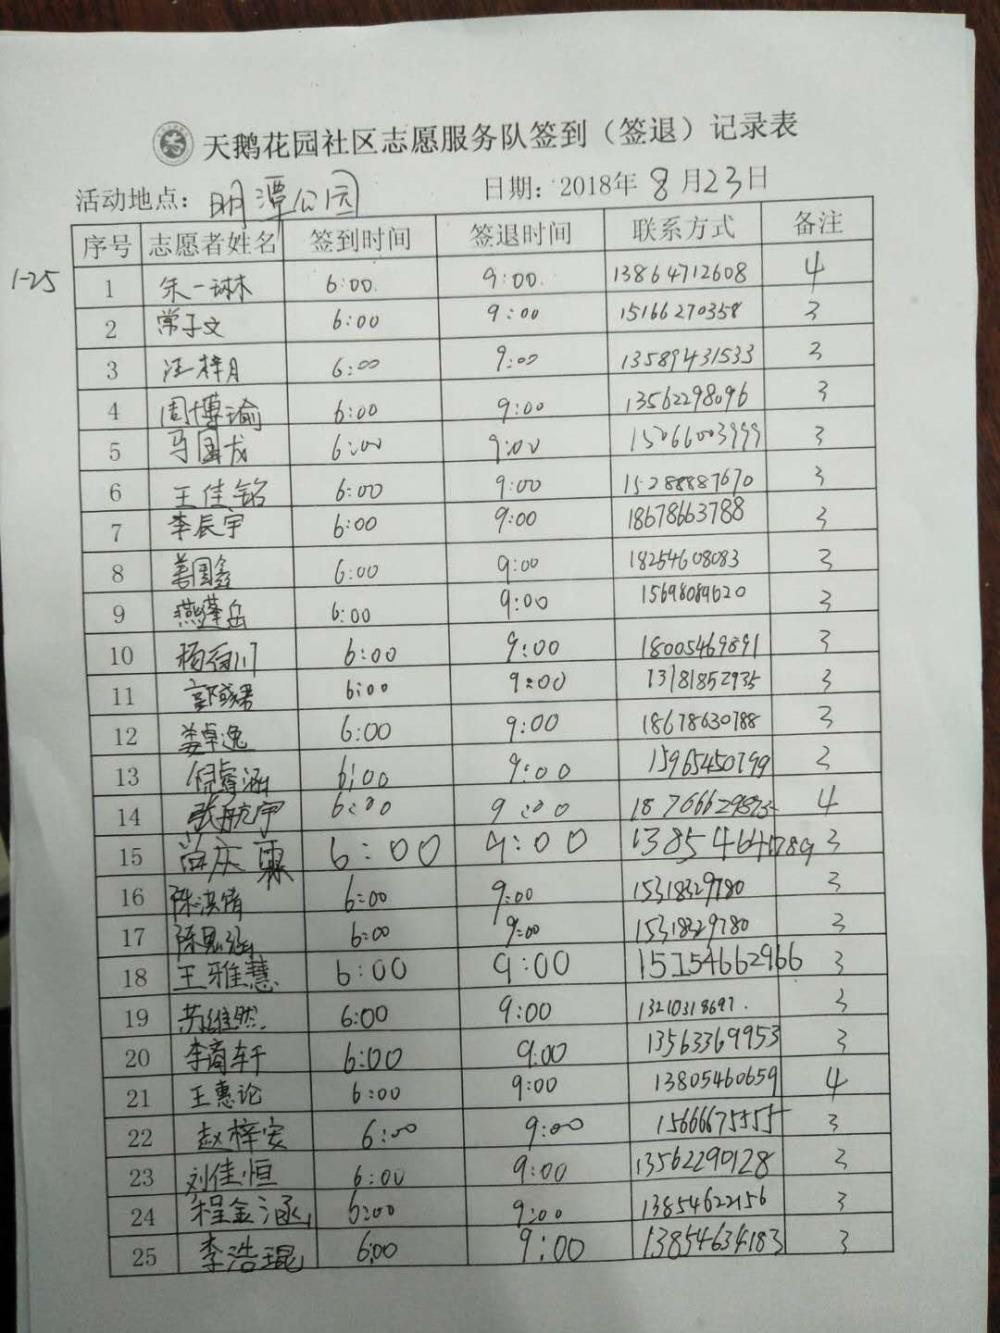 天鹅花园社区志愿服务队签到（签退）记录表
活动地点：明潭公园 日期：2018年8月23日
序号 志愿者姓名 签到时间 签退时间 联系方式 备注
1-25
1 朱一琳 6:00 9:00 13864712608 4
2 常子文 6:00 9:00 15166270358 3
3 汪梓月 6:00 9:00 13589431533 3
4 周博瑜 6:00 9:00 13562298096 3
5 马国龙 6:00 9:00 15066003999 3
6 王佳铭 6:00 9:00 15288887670 3
7 李辰宇 6:00 9:00 18678663788 3
8 姜国鑫 6:00 9:00 18254608083 3
9 燕蓬岳 6:00 9:00 15698089620 3
10 杨 川 6:00 9:00 18005469891 3
11 郭 6:00 9:00 13181852935 3
12 娄卓逸 6:00 9:00 18678630788 3
13 倪睿涵 6:00 9:00 15965450799 3
14 张航宇 6:00 9:00 4
15 庆霖 6:00 9:00 3
16 陈洪倩 6:00 9:00 15318329780 3
17 陈思涵 6:00 9:00 15318329780 3
18 王雅慧 6:00 9:00 15154662966 3
19 苏维然 6:00 9:00 13210318697 3
20 李商轩 6:00 9:00 13563369953 3
21 王惠论 6:00 9:00 13805460659 4
22 赵梓安 6:00 9:00 15666675555 3
23 刘佳恒 6:00 9:00 13562290128 3
24 程金涵 6:00 9:00 13854622156 3
25 李浩琨 6:00 9:00 13854634183 3